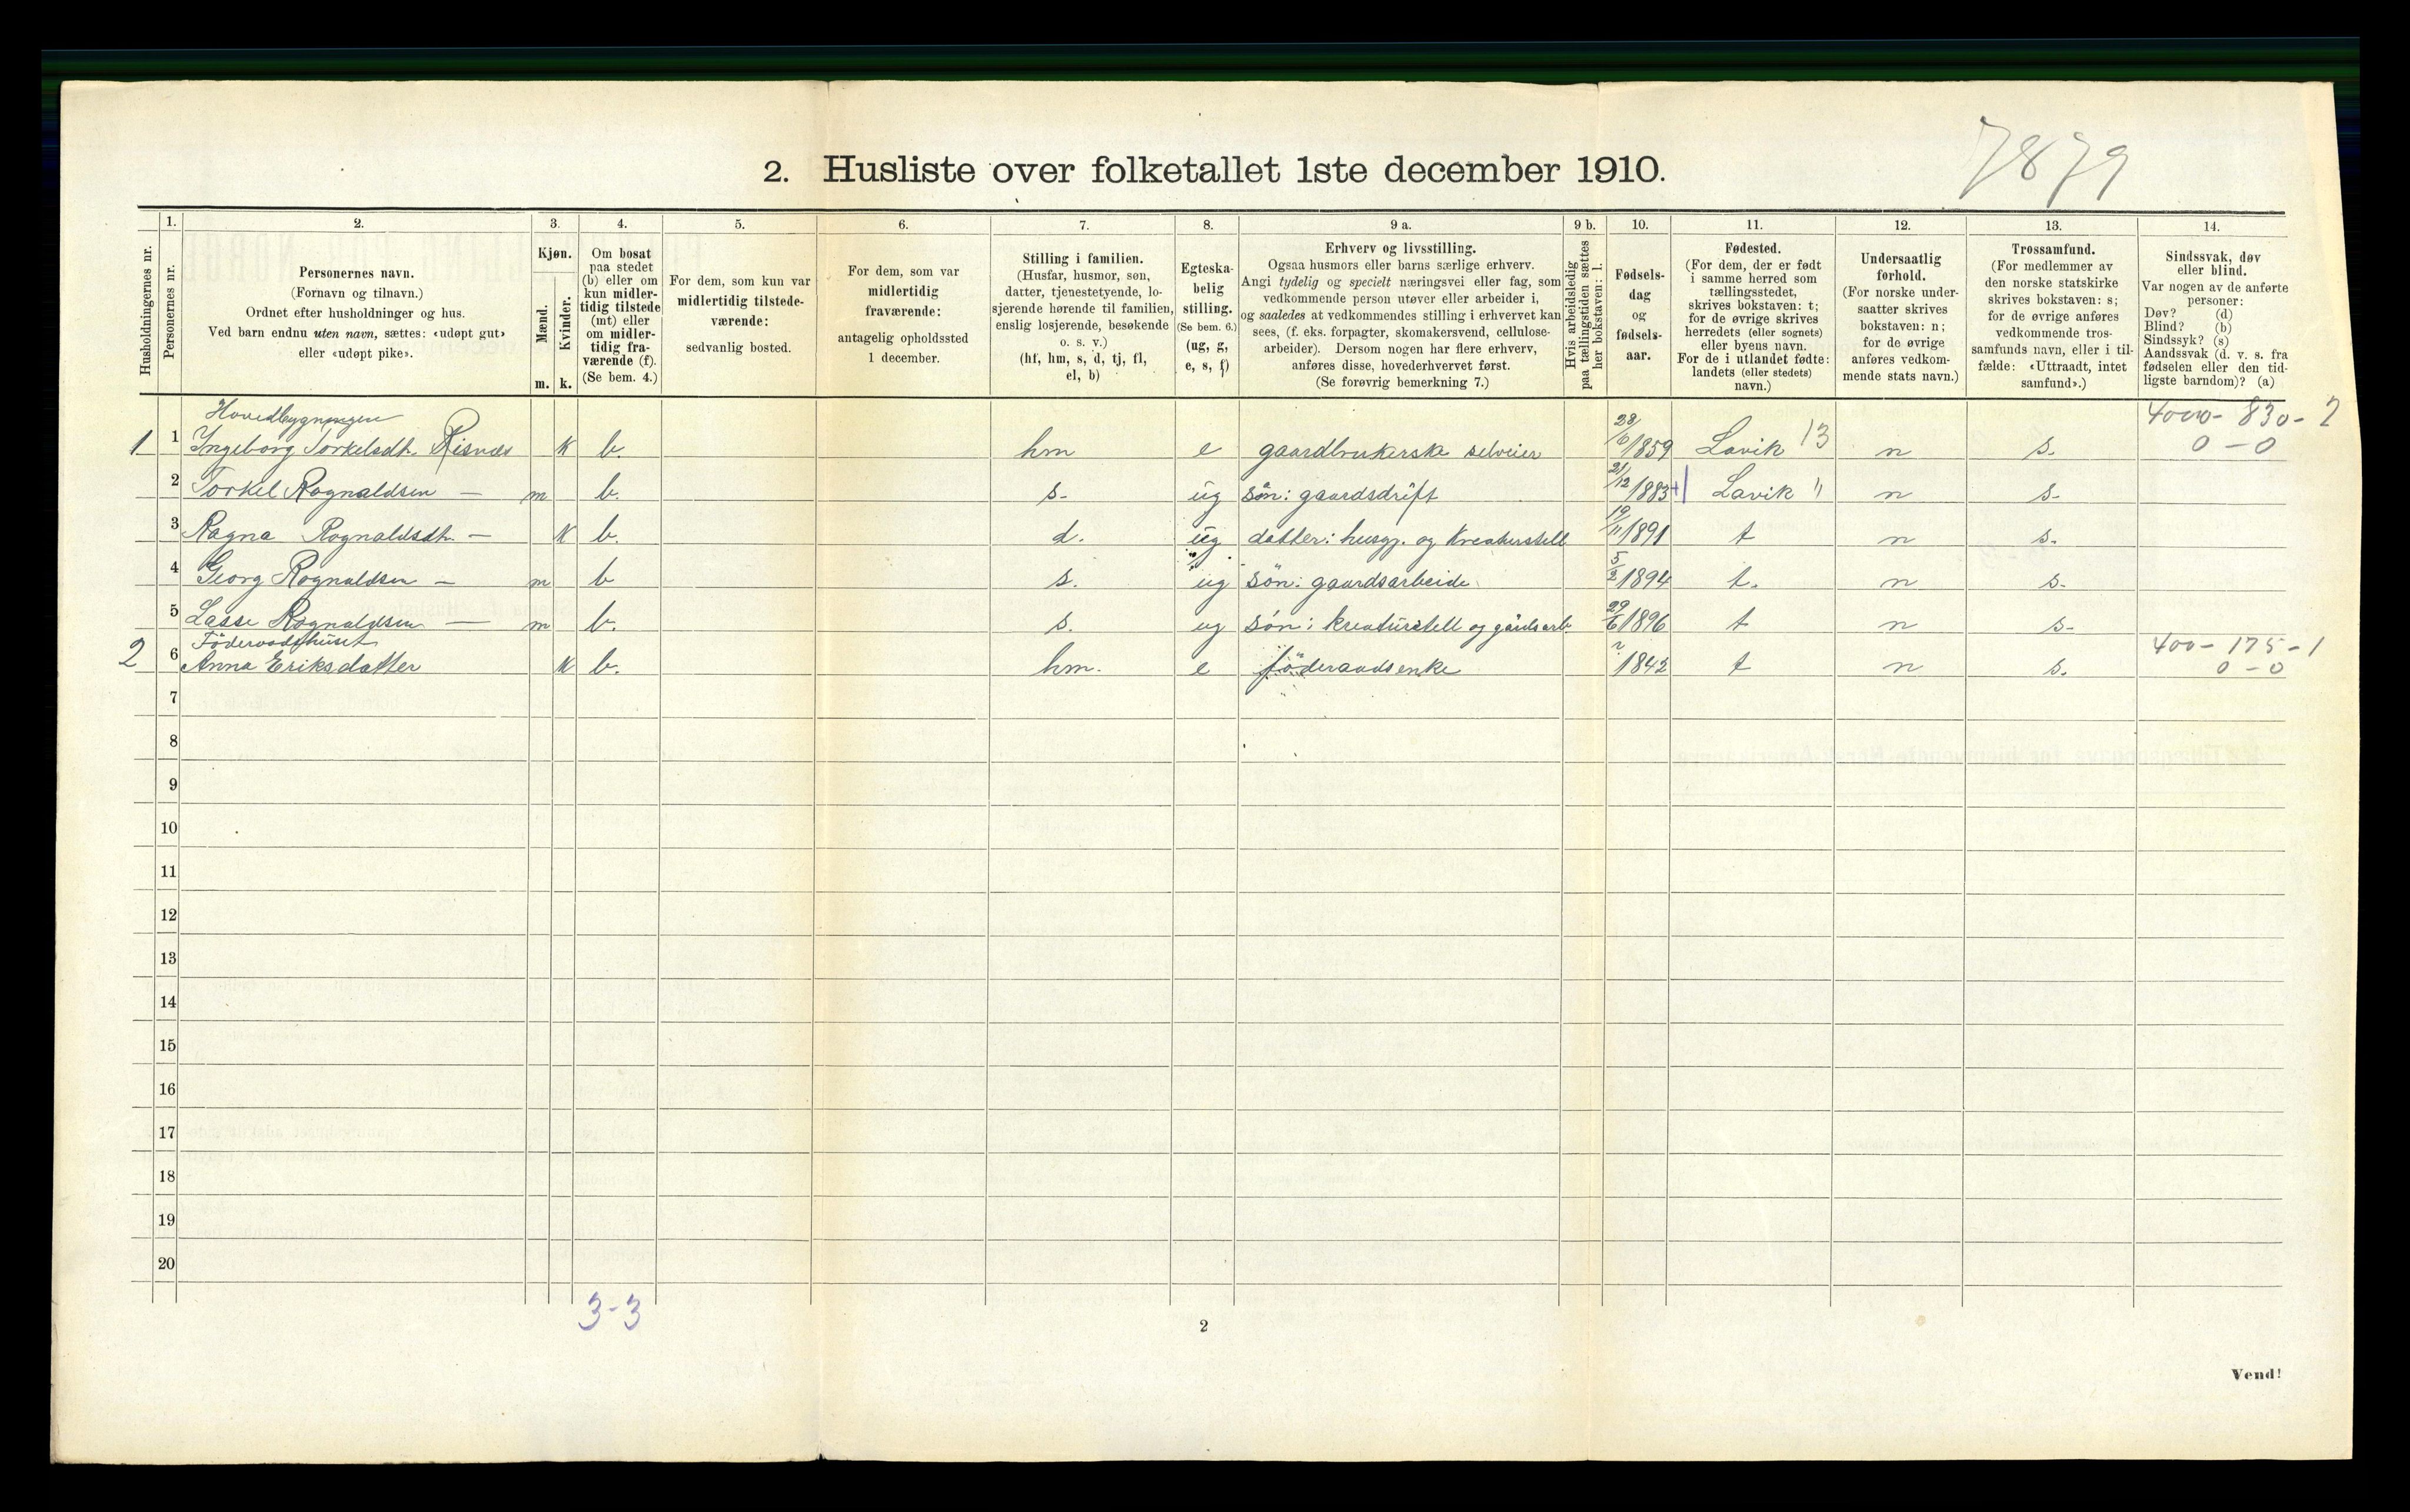 7879
2. Husliste over folketallet 1ste december 1910.
Husholdningernes nr.
1. Personernes nr.
2. Personernes navn.
(Fornavn og tilnavn.)
Ordnet efter husholdninger og hus.
Ved barn endnu uten navn, sættes: «udøpt gut»
eller «udøpt pike».
3. Kjøn.
Mænd. Kvinder.
m. k.
4. Om bosat
paa stedet
(b) eller om
kun midler-
tidig tilstede
(mt) eller
om midler-
tidig fra-
værende (f).
(Se bem. 4.)
5. For dem, som kun var
midlertidig tilstede-
værende:
sedvanlig bosted.
6. For dem, som var
midlertidig
fraværende:
antagelig opholdssted
1 december.
7. Stilling i familien.
(Husfar, husmor, søn,
datter, tjenestetyende, lo-
sjerende hørende til familien,
enslig losjerende, besøkende
o. s. v.)
(hf, hm, s, d, tj, fl,
el, b)
8. Egteska-
belig
stilling.
(Se bem. 6.)
(ug, g,
e, s, f)
9 a. Erhverv og livsstilling.
Ogsaa husmors eller barns særlige erhverv.
Angi tydelig og specielt næringsvei eller fag, som
vedkommende person utøver eller arbeider i,
og saaledes at vedkommendes stilling i erhvervet kan
sees, (f. eks. forpagter, skomakersvend, cellulose-
arbeider). Dersom nogen har flere erhverv,
anføres disse, hovederhvervet først.
(Se forøvrig bemerkning 7.)
9 b. Hvis arbeidsledig
paa tællingstiden sættes
her bokstaven: l.
10. Fødsels-
dag
og
fødsels-
aar.
11. Fødested.
(For dem, der er født
i samme herred som
tællingsstedet,
skrives bokstaven: t;
for de øvrige skrives
herredets (eller sognets)
eller byens navn.
For de i utlandet fødte:
landets (eller stedets)
navn.)
12. Undersaatlig
forhold.
(For norske under-
saatter skrives
bokstaven: n;
for de øvrige
anføres vedkom-
mende stats navn.)
13. Trossamfund.
(For medlemmer av
den norske statskirke
skrives bokstaven: s;
for de øvrige anføres
vedkommende tros-
samfunds navn, eller i til-
fælde: «Uttraadt, intet
samfund».)
14. Sindssvak, døv
eller blind.
Var nogen av de anførte
personer:
Døv? (d)
Blind? (b)
Sindssyk? (s)
Aandssvak (d. v. s. fra
fødselen eller den tid-
ligste barndom)? (a)
Hovedbygningen 4000 - 830 - 2
1 1 Ingeborg Torkelsdt. Risnes k b. hm e gaardbrukerske selveier 28/6 1859 Lavik 13 n s. 0 - 0
2 Torkel Rognaldsen — m b. s- ug søn: gaardsdrift 21/12 1883 Lavik " n s-
3 Ragna Rognaldsdt. — k b. d. ug datter: husgj. og kreaturstell 19/11 1891 t n s.
4 Georg Rognaldsen — m b s. ug søn: gaardsarbeide 5/2 1894 t. n s-
5 Lasse Rognaldsen — m b. s. ug søn: kreaturstell og gårdsarb. 29/6 1896 t n s-
Föderaadshuset 400 - 175 - 1
2 6 Anna Eriksdatter k b. hm. e föderaadsenke 1842 t n s. 0 - 0
7
8
9
10
11
12
13
14
15
16
17
18
19
20
3-3
2
Vend!